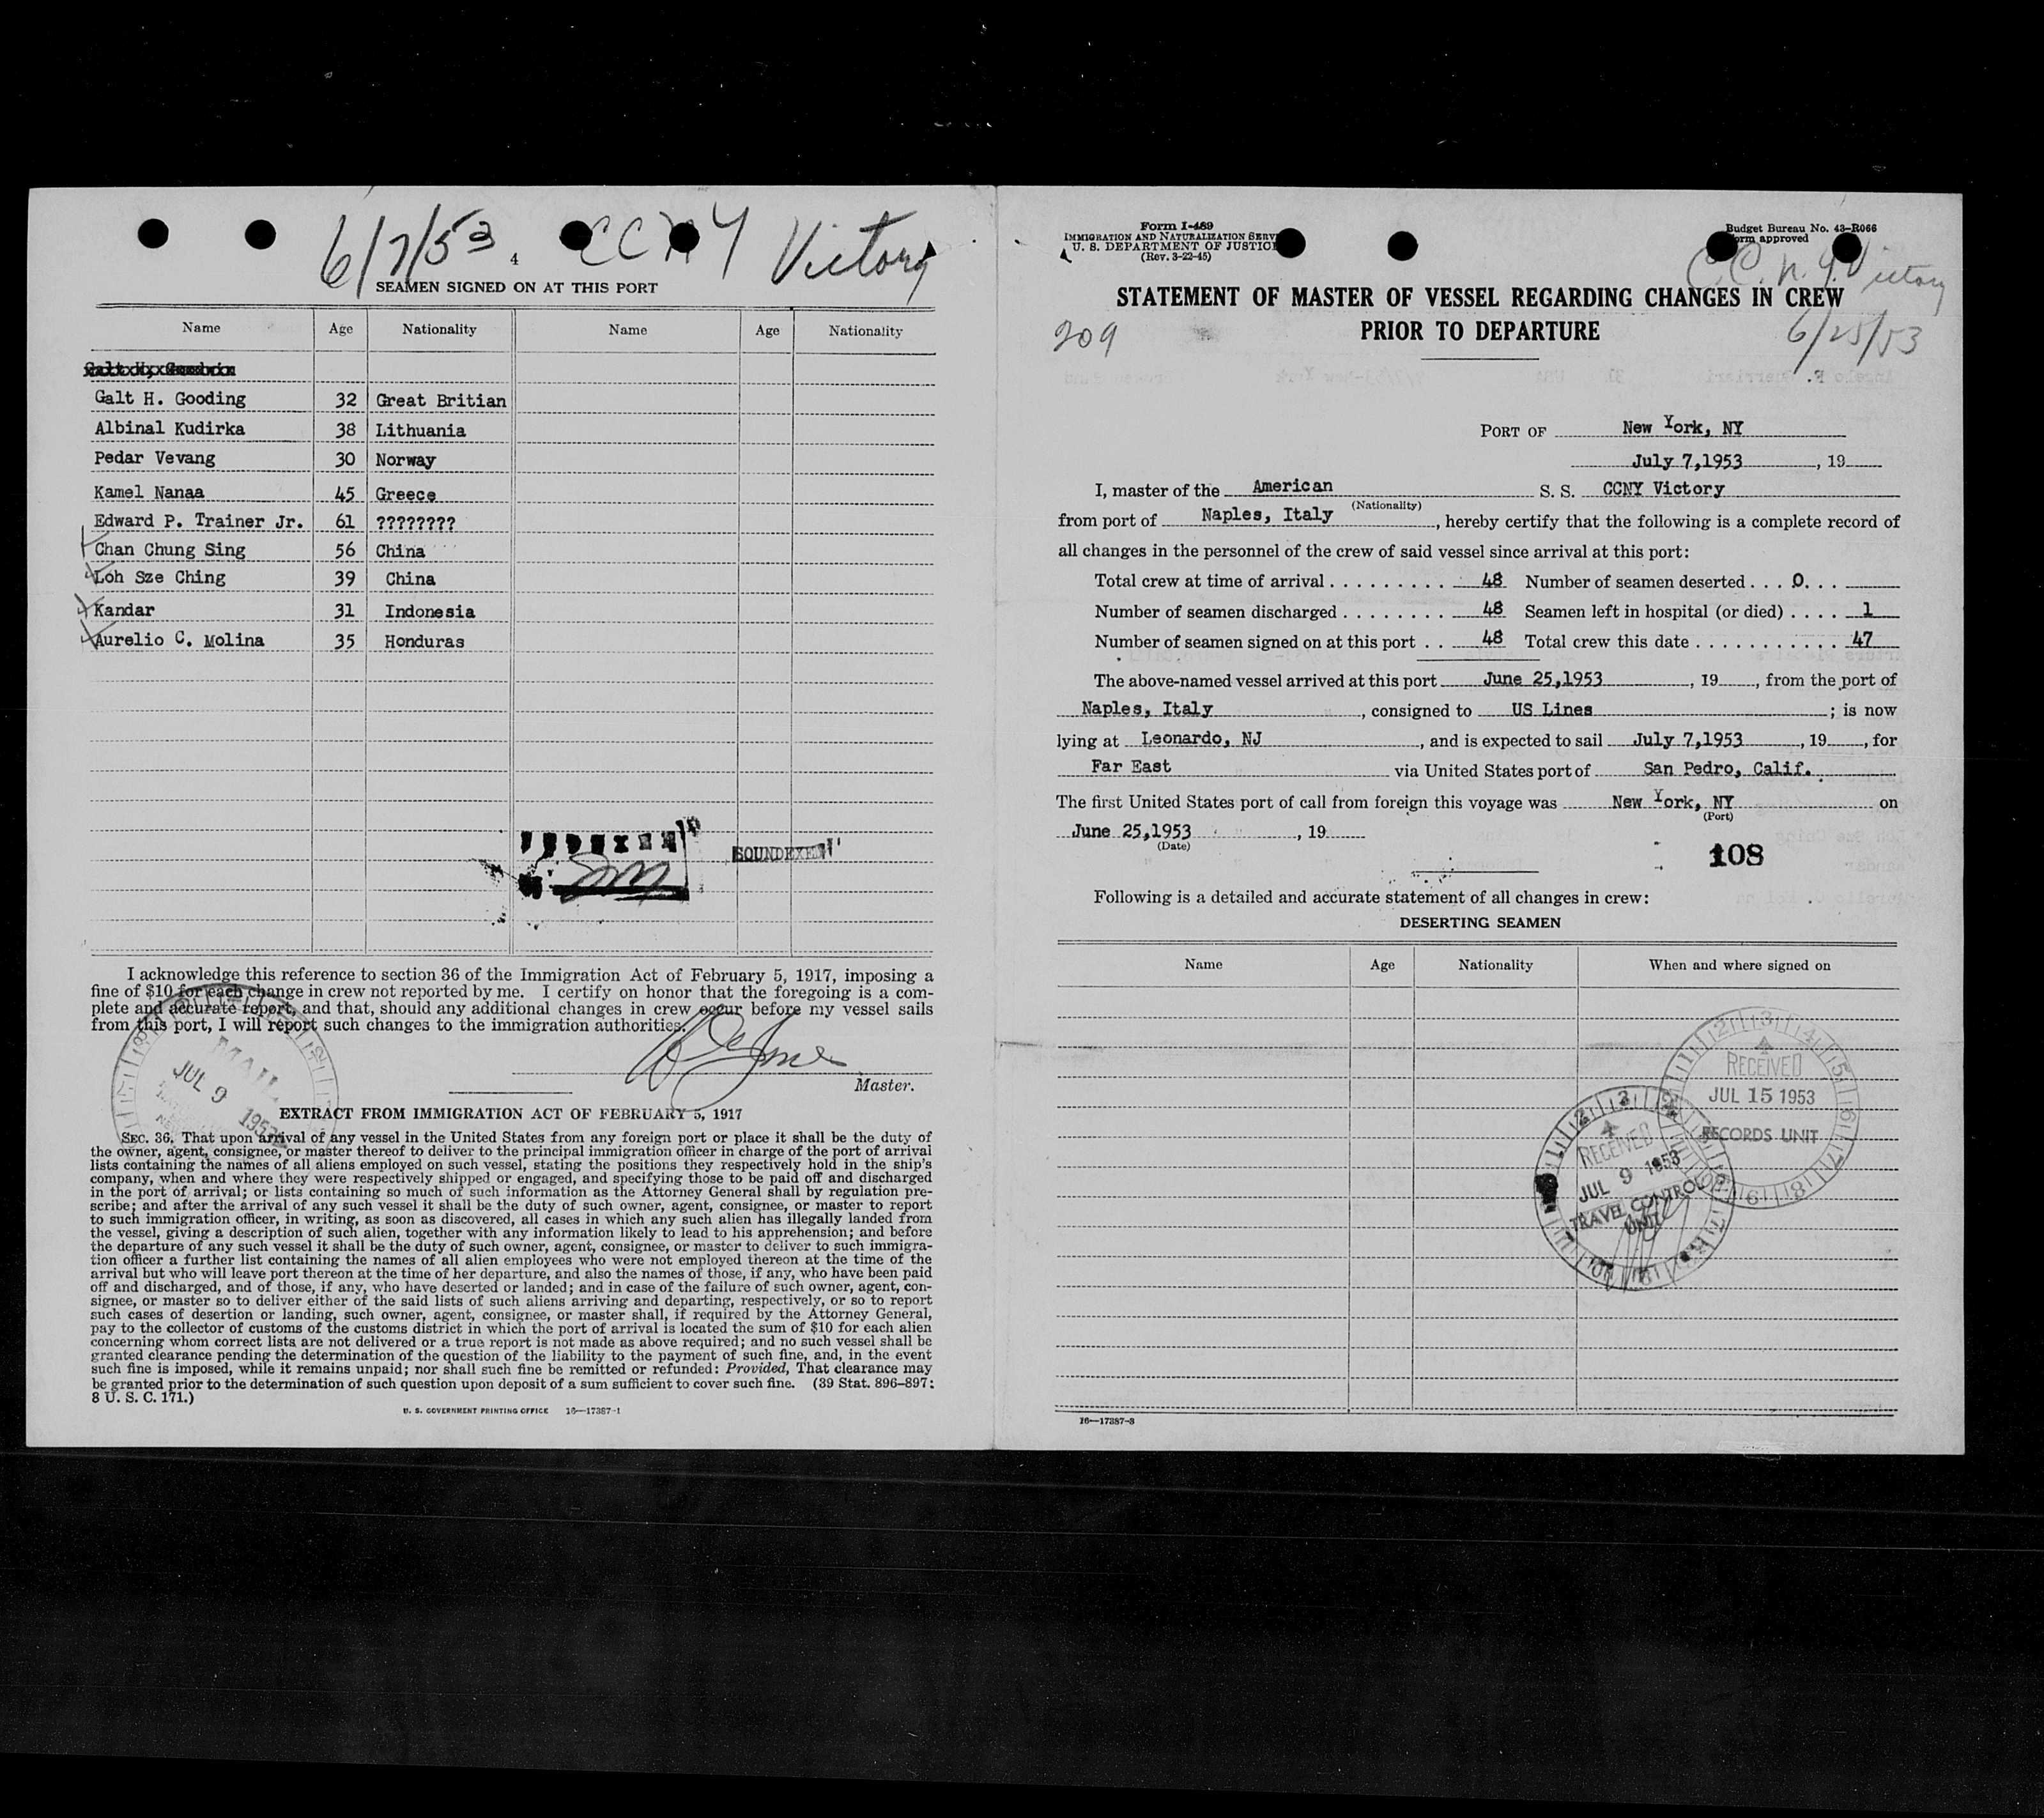 6/7/53 CCNY Victory
4
SEAMEN SIGNED ON AT THIS PORT
Name Age Nationality Name Age Nationality
Galt H. Gooding 32 Great Britian
Albinal Kudirka 38 Lithuania
Pedar Vevang 30 Norway
Kamel Nanaa 45 Greece
Edward P. Trainer Jr. 61 ????????
Chan Chung Sing 56 China
Loh Sze Ching 39 China
Kandar 31 Indonesia
Aurelio C. Molina 35 Honduras
INDEXED
SOUNDEXED
I acknowledge this reference to section 36 of the Immigration Act of February 5, 1917, imposing a
fine of $10 for each change in crew not reported by me. I certify on honor that the foregoing is a com-
plete and accurate report, and that, should any additional changes in crew occur before my vessel sails
from this port, I will report such changes to the immigration authorities.
Master.
MAIL
JUL 9 1953
EXTRACT FROM IMMIGRATION ACT OF FEBRUARY 5, 1917
SEC. 36. That upon arrival of any vessel in the United States from any foreign port or place it shall be the duty of
the owner, agent, consignee, or master thereof to deliver to the principal immigration officer in charge of the port of arrival
lists containing the names of all aliens employed on such vessel, stating the positions they respectively hold in the ship's
company, when and where they were respectively shipped or engaged, and specifying those to be paid off and discharged
in the port of arrival; or lists containing so much of such information as the Attorney General shall by regulation pre-
scribe; and after the arrival of any such vessel it shall be the duty of such owner, agent, consignee, or master to report
to such immigration officer, in writing, as soon as discovered, all cases in which any such alien has illegally landed from
the vessel, giving a description of such alien, together with any information likely to lead to his apprehension; and before
the departure of any such vessel it shall be the duty of such owner, agent, consignee, or master to deliver to such immigra-
tion officer a further list containing the names of all alien employees who were not employed thereon at the time of the
arrival but who will leave port thereon at the time of her departure, and also the names of those, if any, who have been paid
off and discharged, and of those, if any, who have deserted or landed; and in case of the failure of such owner, agent, con-
signee, or master so to deliver either of the said lists of such aliens arriving and departing, respectively, or so to report
such cases of desertion or landing, such owner, agent, consignee, or master shall, if required by the Attorney General,
pay to the collector of customs of the customs district in which the port of arrival is located the sum of $10 for each alien
concerning whom correct lists are not delivered or a true report is not made as above required; and no such vessel shall be
granted clearance pending the determination of the question of the liability to the payment of such fine, and, in the event
such fine is imposed, while it remains unpaid; nor shall such fine be remitted or refunded: Provided, That clearance may
be granted prior to the determination of such question upon deposit of a sum sufficient to cover such fine. (39 Stat. 896-897;
8 U. S. C. 171.)
U. S. GOVERNMENT PRINTING OFFICE 16—17387-1
Form I-489
IMMIGRATION AND NATURALIZATION SERV
U. S. DEPARTMENT OF JUSTICE
(Rev. 3-22-45)
Budget Bureau No. 43-R066
Form approved
C.C.N.Y. Victory
STATEMENT OF MASTER OF VESSEL REGARDING CHANGES IN CREW
PRIOR TO DEPARTURE
209
6/25/53
PORT OF New York, NY
July 7,1953, 19
I, master of the American S. S. CCNY Victory
(Nationality)
from port of Naples, Italy, hereby certify that the following is a complete record of
all changes in the personnel of the crew of said vessel since arrival at this port:
Total crew at time of arrival . . . . . . . . . 48 Number of seamen deserted . . . 0. . .
Number of seamen discharged . . . . . . . . 48 Seamen left in hospital (or died) . . . . 1
Number of seamen signed on at this port . . 48 Total crew this date . . . . . . . . . . . 47
The above-named vessel arrived at this port June 25,1953, 19, from the port of
Naples, Italy, consigned to US Lines; is now
lying at Leonardo, NJ, and is expected to sail July 7,1953, 19, for
Far East via United States port of San Pedro, Calif.
The first United States port of call from foreign this voyage was New York, NY on
(Port)
June 25,1953, 19
(Date)
108
Following is a detailed and accurate statement of all changes in crew:
DESERTING SEAMEN
Name Age Nationality When and where signed on
RECEIVED
JUL 15 1953
RECORDS UNIT
RECEIVED
JUL 9 1953
TRAVEL CONTROL
UNIT
16—17387-3